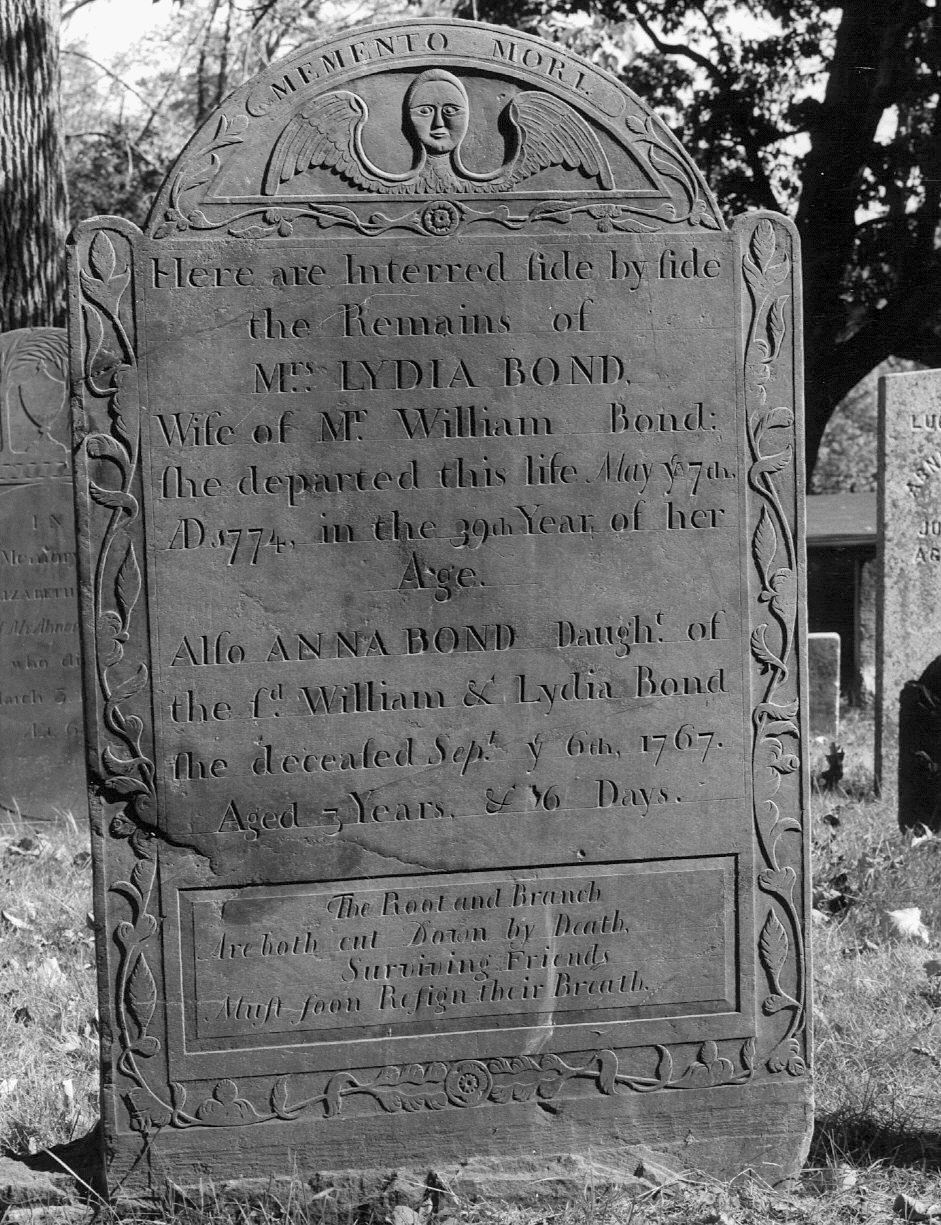 MEMENTO MORI.
Here are Interred ſide by ſide
the Remains of
Mrs. LYDIA BOND,
Wife of Mr. William Bond;
ſhe departed this life May ye 7th.
AD 1774, in the 39th Year, of her
Age.
Alſo ANNA BOND Daught. of
the ſd. William & Lydia Bond
ſhe deceaſed Sept. ye 6th, 1767.
Aged 3 Years, & 16 Days.
The Root and Branch
Are both cut Down by Death,
Surviving Friends
Muſt ſoon Reſign their Breath.
IN
Memory
of Mr Abner
who di
March 3
LU
JO
AG